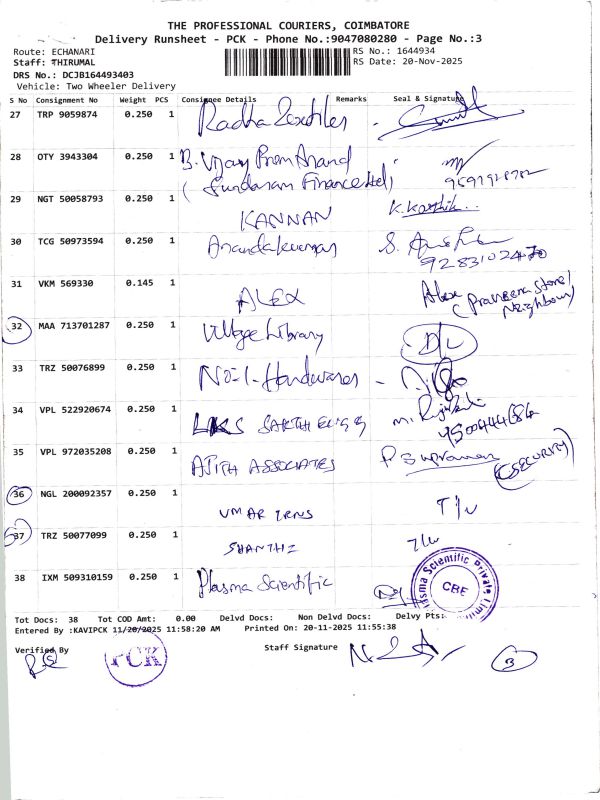 THE PROFESSIONAL COURIERS, COIMBATORE
Delivery Runsheet - PCK - Phone No.:9047080280 - Page No.:3
Route: ECHANARI RS No.: 1644934
Staff: THIRUMAL RS Date: 20-Nov-2025
DRS No.: DCJB164493403
Vehicle: Two Wheeler Delivery
S No Consignment No Weight PCS Consignee Details Remarks Seal & Signature
27 TRP 9059874 0.250 1 Radha Textiles
28 OTY 3943304 0.250 1 B. Vijay Prem Anand
(Sundaram Finance Ltd)
29 NGT 50058793 0.250 1 KANNAN K. Karthik
30 TCG 50973594 0.250 1 Anandakumar
9283102470
31 VKM 569330 0.145 1 ALEX Alex (Praveena Store/
Neighbour)
32 MAA 713701287 0.250 1 Village Library D/L
33 TRZ 50076899 0.250 1 No-1-Hardwares
34 VPL 522920674 0.250 1 LKS
35 VPL 972035208 0.250 1 AJITH ASSOCIATES (SECURITY)
36 NGL 200092357 0.250 1 UMAR TRNS
37 TRZ 50077099 0.250 1 SHANTHI
38 IXM 509310159 0.250 1 Plasma Scientific
asma Scientific Private Limi
CBE
Tot Docs: 38 Tot COD Amt: 0.00 Delvd Docs: Non Delvd Docs: Delvy Pts:
Entered By :KAVIPCK 11/20/2025 11:58:20 AM Printed On: 20-11-2025 11:55:38
Verified By Staff Signature
PCK
3